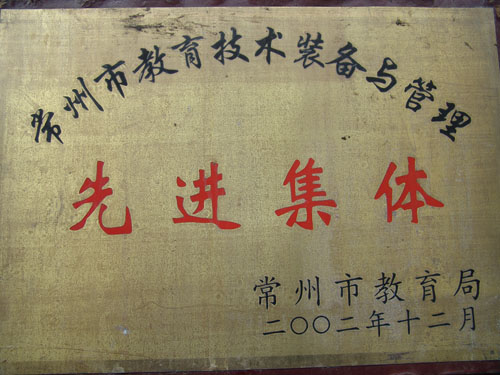 常州市教育技术装备与管理
先进集体
常州市教育局
二〇〇二年十二月